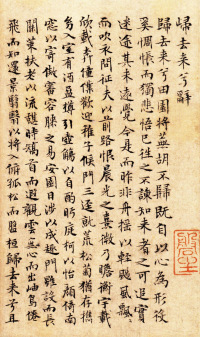 歸去來兮辭
歸去來兮田園將蕪胡不歸既自以心為形役
奚惆悵而獨悲悟已往之不諫知來者之可追實
迷途其未遠覺今是而昨非舟搖以輕颺風飄
而吹衣問征夫以前路恨晨光之熹微乃瞻衡宇載
欣載奔僮僕歡迎稚子候門三逕就荒松菊猶存攜
幼入室有酒盈樽引壺觴以自酌眄庭柯以怡顏倚南
窗以寄傲審容膝之易安園日涉以成趣門雖設而長
關策扶老以流憩時矯首而遐觀雲無心而出岫鳥倦
飛而知還景翳翳以將入撫孤松而盤桓歸去來兮且